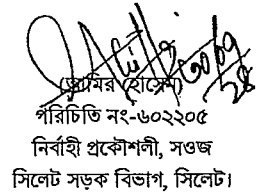 (আমির হোসেন)
পরিচিতি নং-৬০২২০৫
নির্বাহী প্রকৌশলী, সওজ
সিলেট সড়ক বিভাগ, সিলেট।